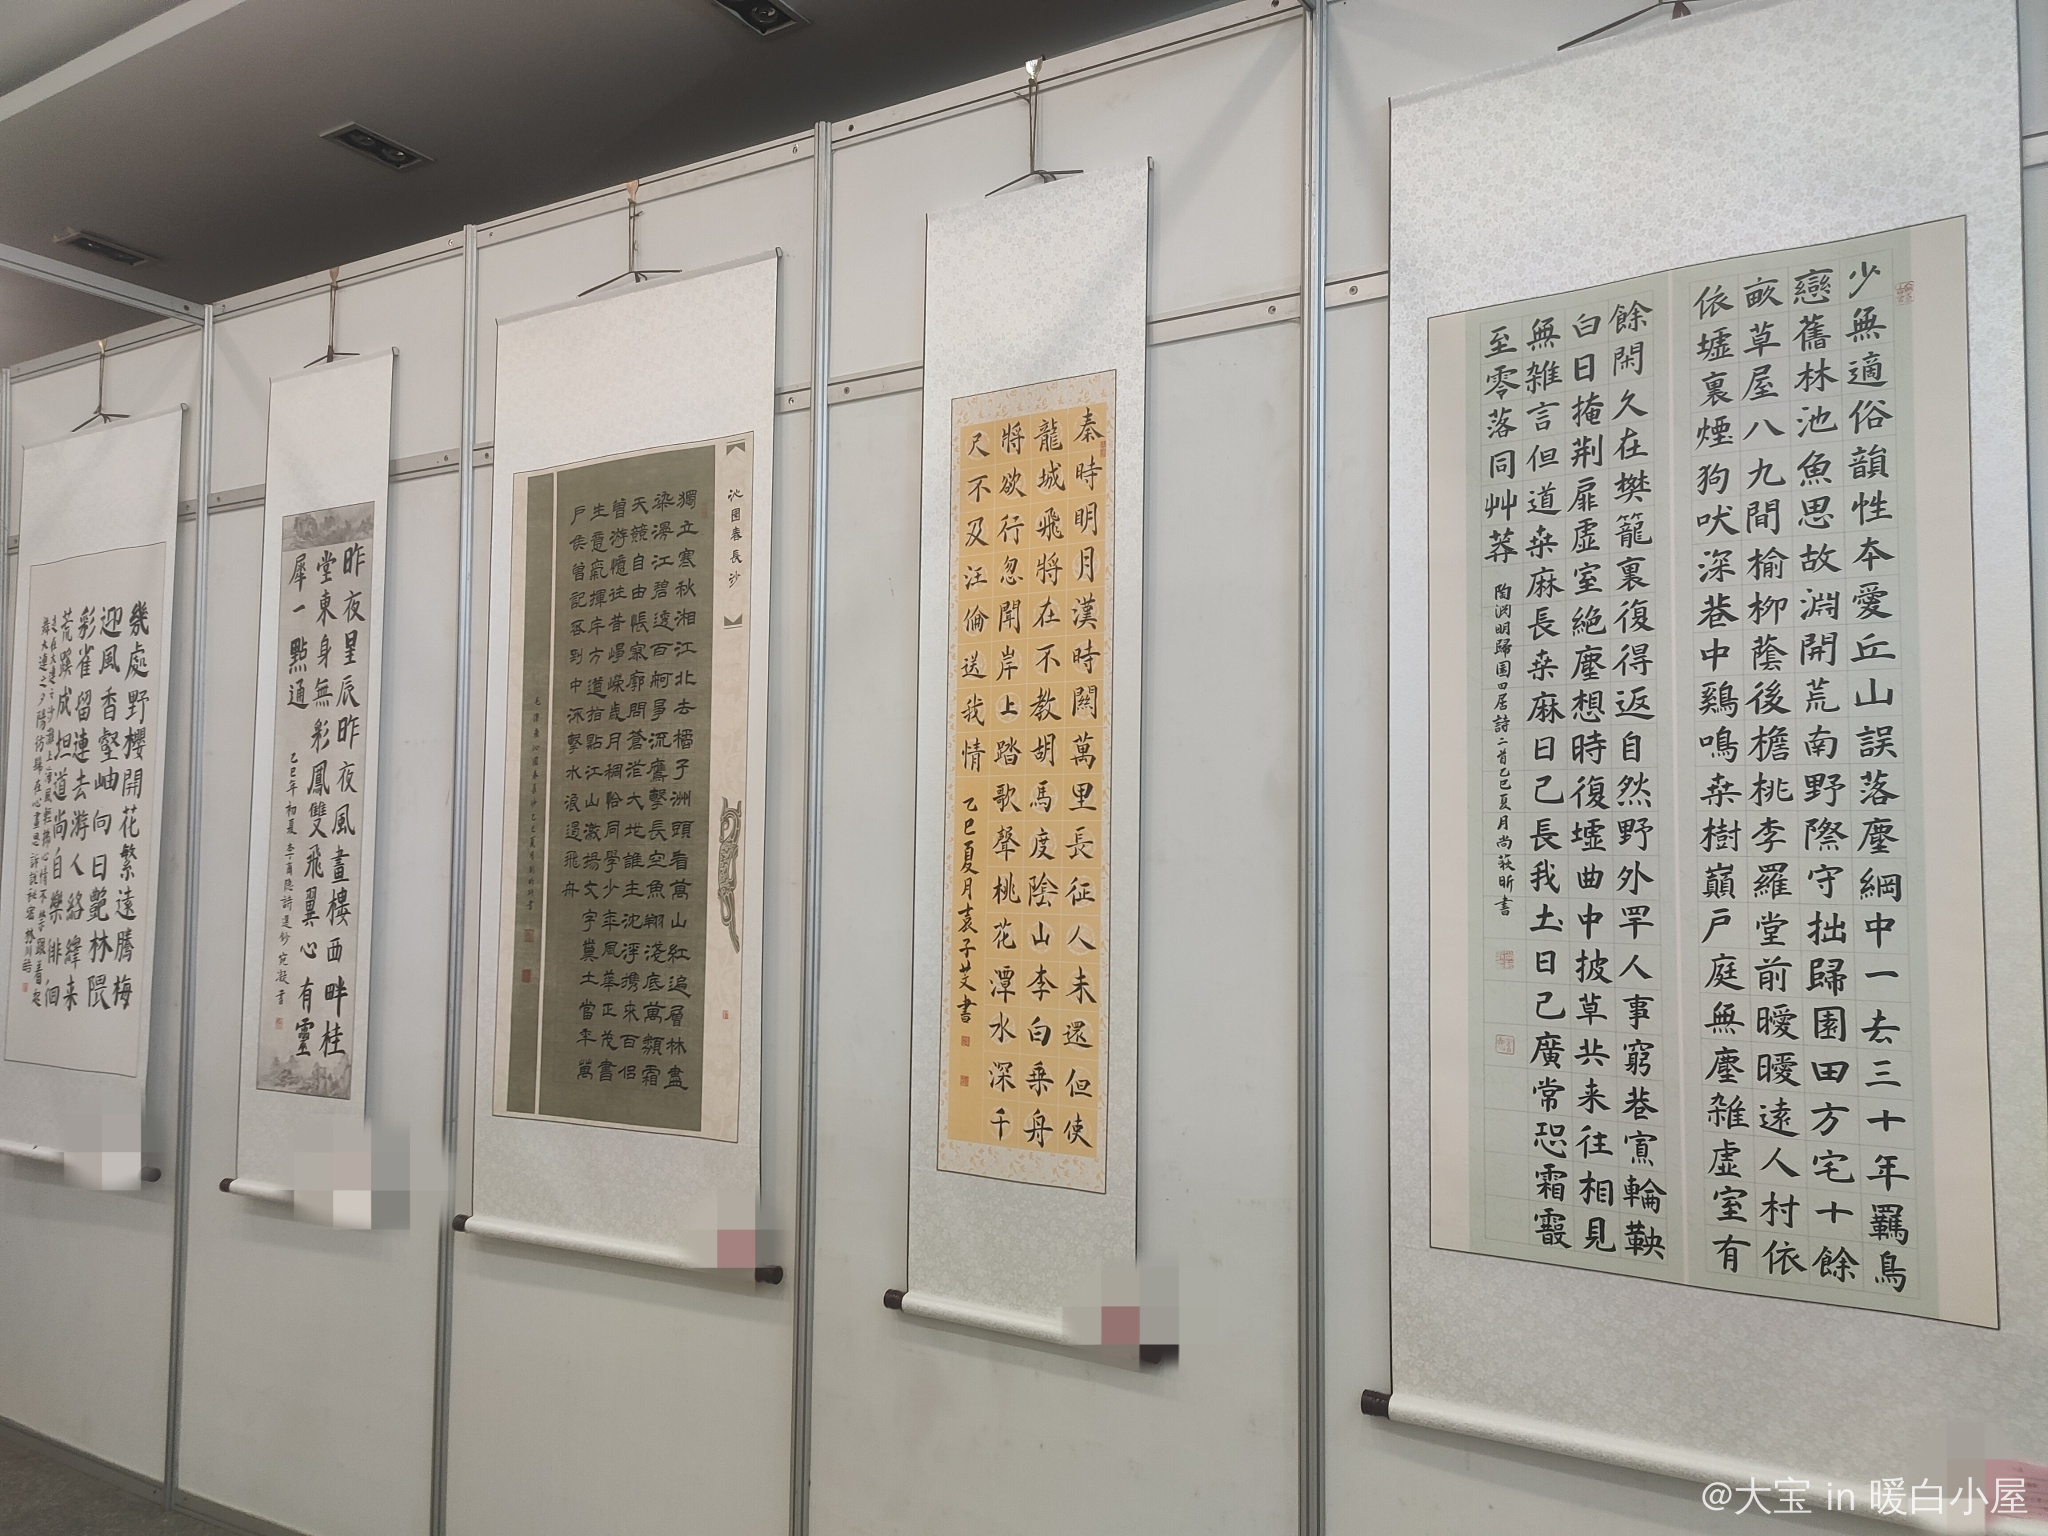 少無適俗韻性本愛丘山誤落塵網中一去三十年羈鳥
戀舊林池魚思故淵開荒南野際守拙歸園田方宅十餘
畝草屋八九間榆柳蔭後檐桃李羅堂前曖曖遠人村依
依墟裏煙狗吠深巷中鷄鳴桒樹巔戶庭無塵雑虛室有
餘閑久在樊籠裏復得返自然野外罕人事窮巷寡輪鞅
白日掩荆扉虛室絕塵想時復墟曲中披草共来往相見
無雑言但道桒麻長桒麻日已長我土日已廣常恐霜霰
至零落同艸莽
陶淵明歸園田居詩二首乙巳夏月尚萩昕書
秦時明月漢時關萬里長征人未還但使
龍城飛將在不教胡馬度陰山李白乗舟
將欲行忽聞岸上踏歌聲桃花潭水深千
尺不及汪倫送我情
乙巳夏月袁子芠書
沁園春長沙
獨立寒秋湘江北去橘子洲頭看萬山紅追層林盡
染漫江碧透百舸爭流鷹擊長空魚翔淺底萬類霜
天競自由悵寥廓問蒼茫大地誰主沈浮攜來百侶
曾游憶往昔崢嶸歲月稠恰同學少年風華正茂書
生意氣揮斥方遒指點江山激揚文字糞土當年萬
戶侯曾記否到中流擊水浪遏飛舟
昨夜星辰昨夜風畫樓西畔桂
堂東身無彩鳳雙飛翼心有靈
犀一點通
乙巳年初夏李商隱詩選鈔
幾處野櫻開花繁遠勝梅
迎風香壑岫向日艷林隈
彩雀留連去游人絡繹来
荒蹊成坦道尚自樂徘徊
@大宝 in 暖白小屋